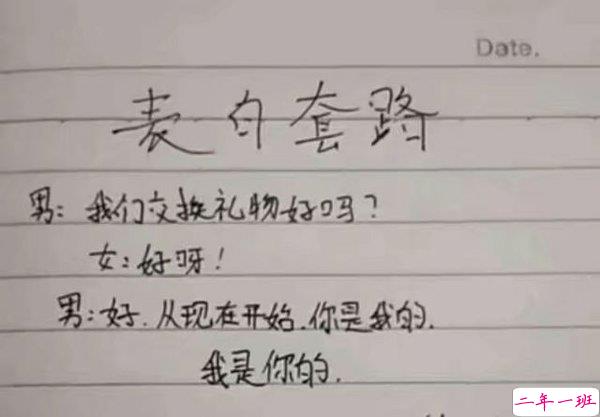 Date.
表白套路
男：我们交换礼物好吗？
女：好呀！
男：好．从现在开始．你是我的．
我是你的．
二年一班